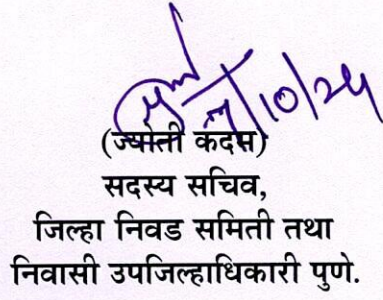 /10/24
(ज्योती कदम)
सदस्य सचिव,
जिल्हा निवड समिती तथा
निवासी उपजिल्हाधिकारी पुणे.